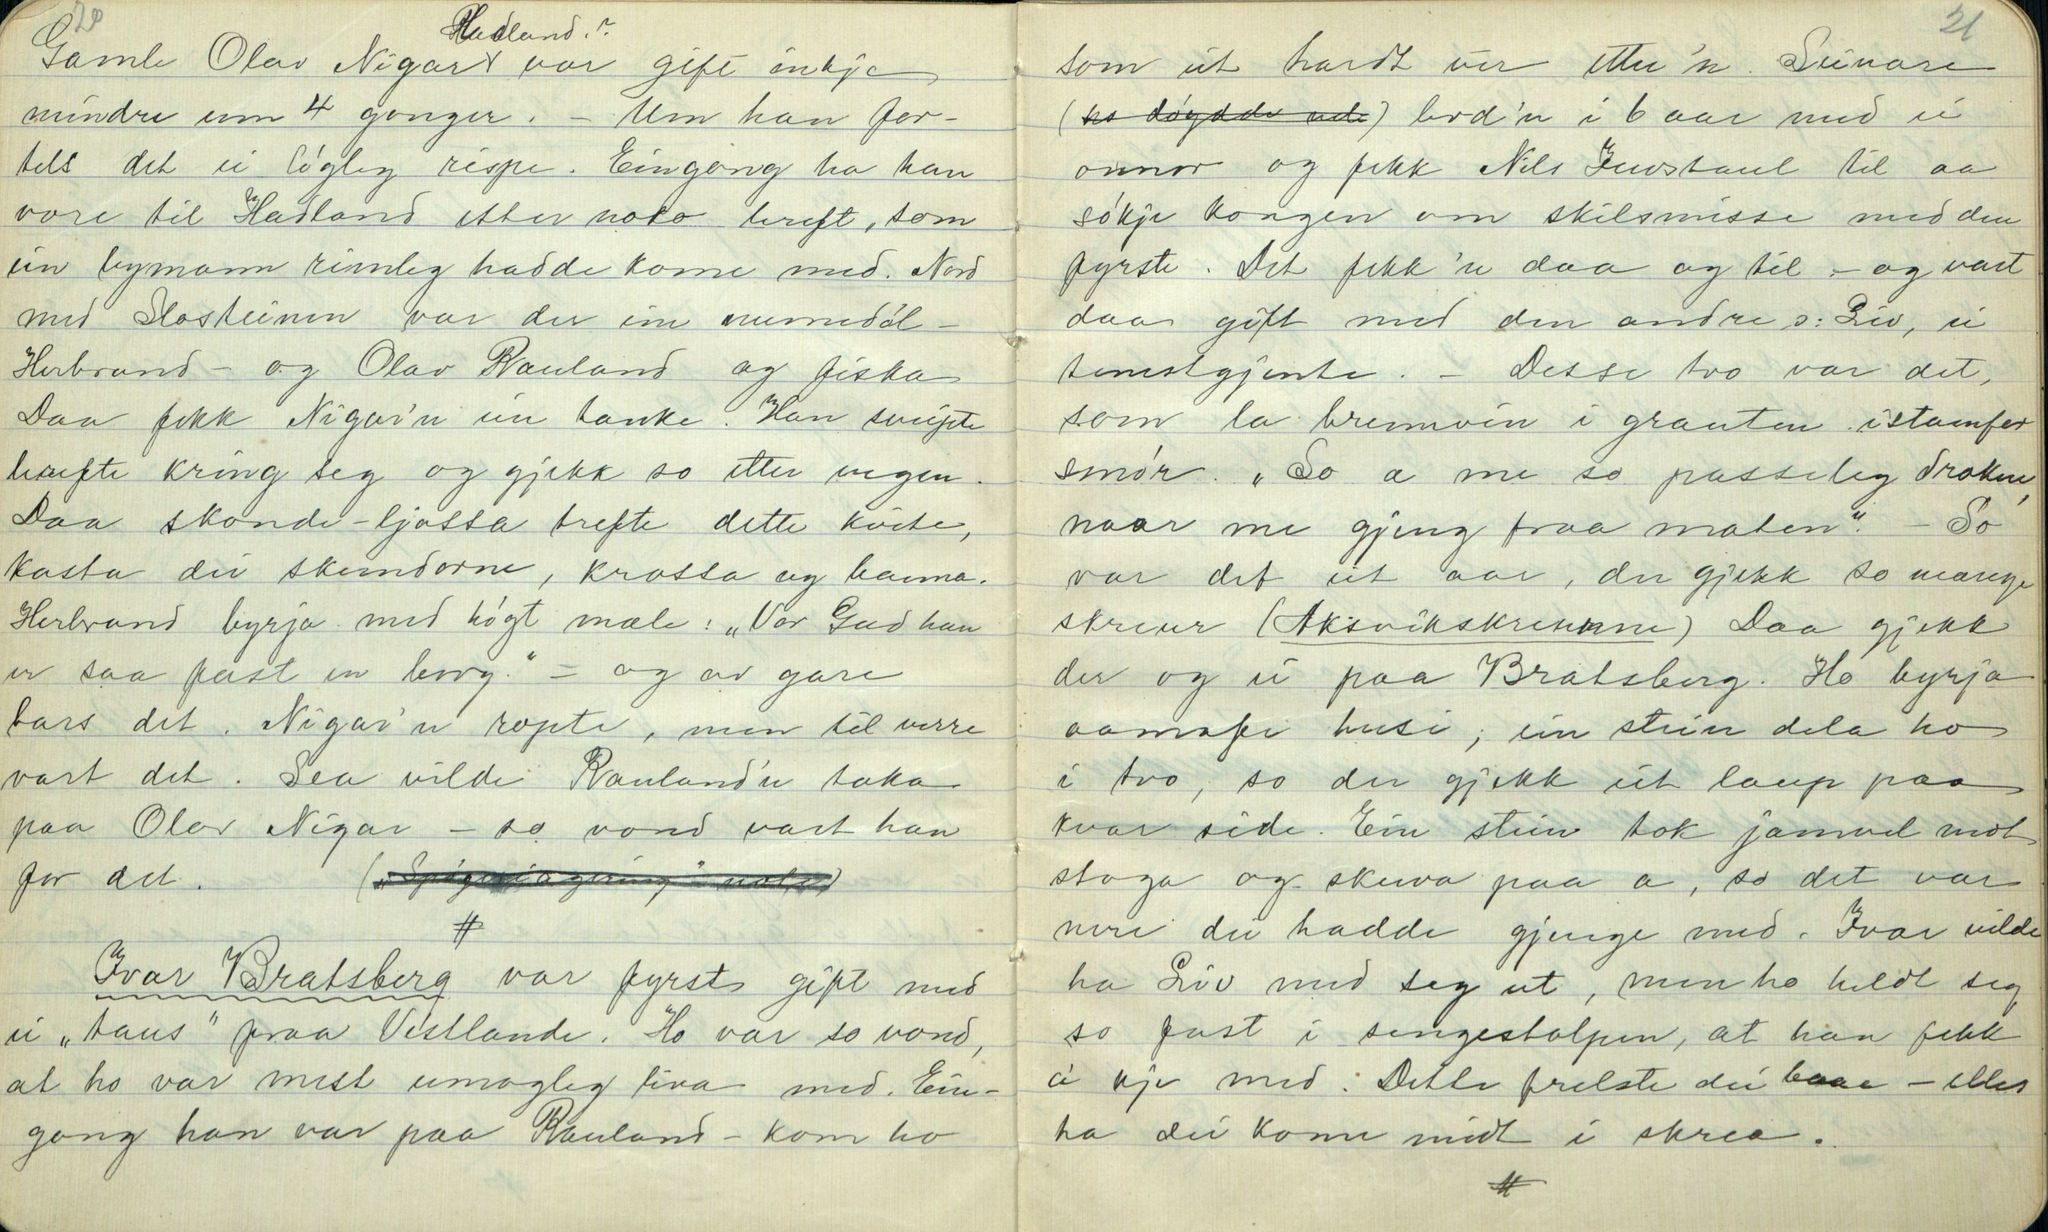 20
Hadland?
Gamle Olav Nigar var gift inkje
mindre enn 4 gonger. – Um han for-
tels det ei løgleg rispe. Eingong ha han
vore til Hadland etter noko tref, som
ein bymann rimeleg hadde kome med. Nord
med Slosteinen var der ein numedøl –
Herbrand – og Olav Rauland og fiska
Daa fekk Nigar'n ein tanke. Han sveipte
kring seg og gjekk so etter vegen.
Daa skonde-ljossa trefte dette kvite,
kasta dei skeindorne, krossa og banna.
Herbrand byrja med høgt mæle: „Vor Gud han
er saa fast en borg." – og av gare
bars det. Nigar'n ropte, men til verre
vart det. Sea vilde Rauland'n taka
paa Olav Nigar – so vond vart han
for det.
#
Ivar Bratsberg var fyrst gift med
ei „taus" fraa Vestlande. Ho var so vond,
at ho var mest umogleg liva med. Ein-
gong han var paa Rauland – kom ho
21
som eit hardt ver ette'n. Seinare
(ho døydde ude) levd'n i 6 aar med ei
onnor og fekk Nils Juvstaul til aa
søkje kongen om skilsmisse med den
fyrste. Det fekk'n daa og til – og vart
daa gift med den andre ɔ: Liv, ei
tenestgjente. – Desse tvo var det,
som la brennvin i grauten istaenfor
smør. „So a me so passeleg drokne,
naar me gjeng fraa maten". – So
var det eit aar, der gjekk so mange
skreur (Aksvikskreunne) Daa gjekk
der og ei paa Bratsberg. Ho byrja
ovanfe husi; ein stein dela ho
i tvo, so der gjekk eit laup paa
kvar side. Ein stein tok jamvel mot
stoga og skuva paa a, so det var
nere dei hadde gjenge med. Ivar vilde
ha Liv med seg ut, men ho heldt seg
so fast i sengestolpen, at han fekk
a kje med. Dette frelste dei bare – elles
ha dei kome midt i skrea.
#